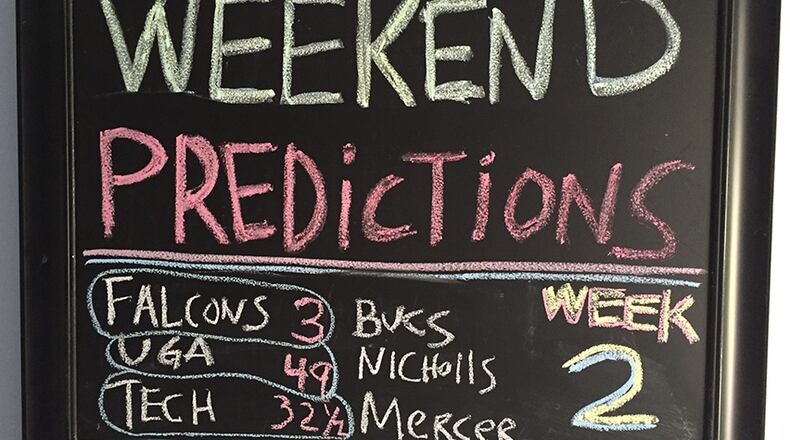 WEEKEND
PREDiCTiONS
FALCONS 3 BUCS
UGA 49 NiCHOLLS
TECH 32½ MERCER
WEEK
2